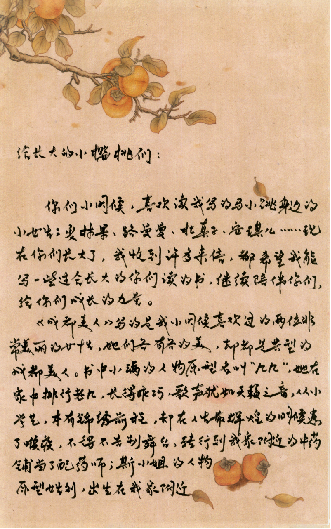 给长大的小樱桃们：
你们小时候，喜欢读我写的马小跳身边的
小女生：夏林果、路曼曼、杜真子、安琪儿……现
在你们长大了，我收到许多来信，都希望我能
写一些适合长大的你们读的书，继续陪伴你们，
给你们成长的力量。
《成都美人》写的是我小时候喜欢过的两位非
常美丽的女性，她们各有各的美，却都是典型的
成都美人。书中小满的人物原型名叫“九九”，她在
家中排行老九，长得乖巧，歌声犹如天籁之音，从小
学艺，本有锦绣前程，却在人生最辉煌的时候患
了喉疾，不得不告别舞台，转行到我家附近的中药
铺当了配药师；斯小姐的人物
原型姓刘，出生在我家附近